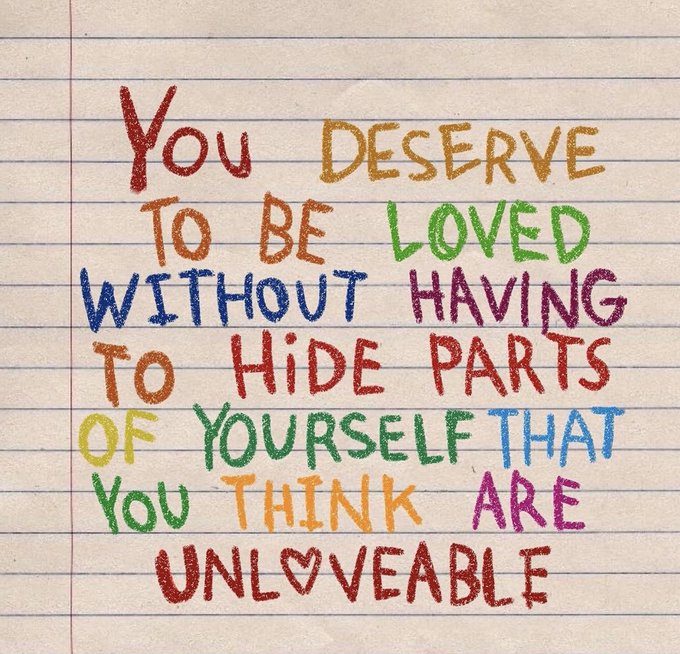 You DESERVE
TO BE LOVED
WITHOUT HAVING
TO HiDE PARTS
OF YOURSELF THAT
YOU THINK ARE
UNL♡VEABLE